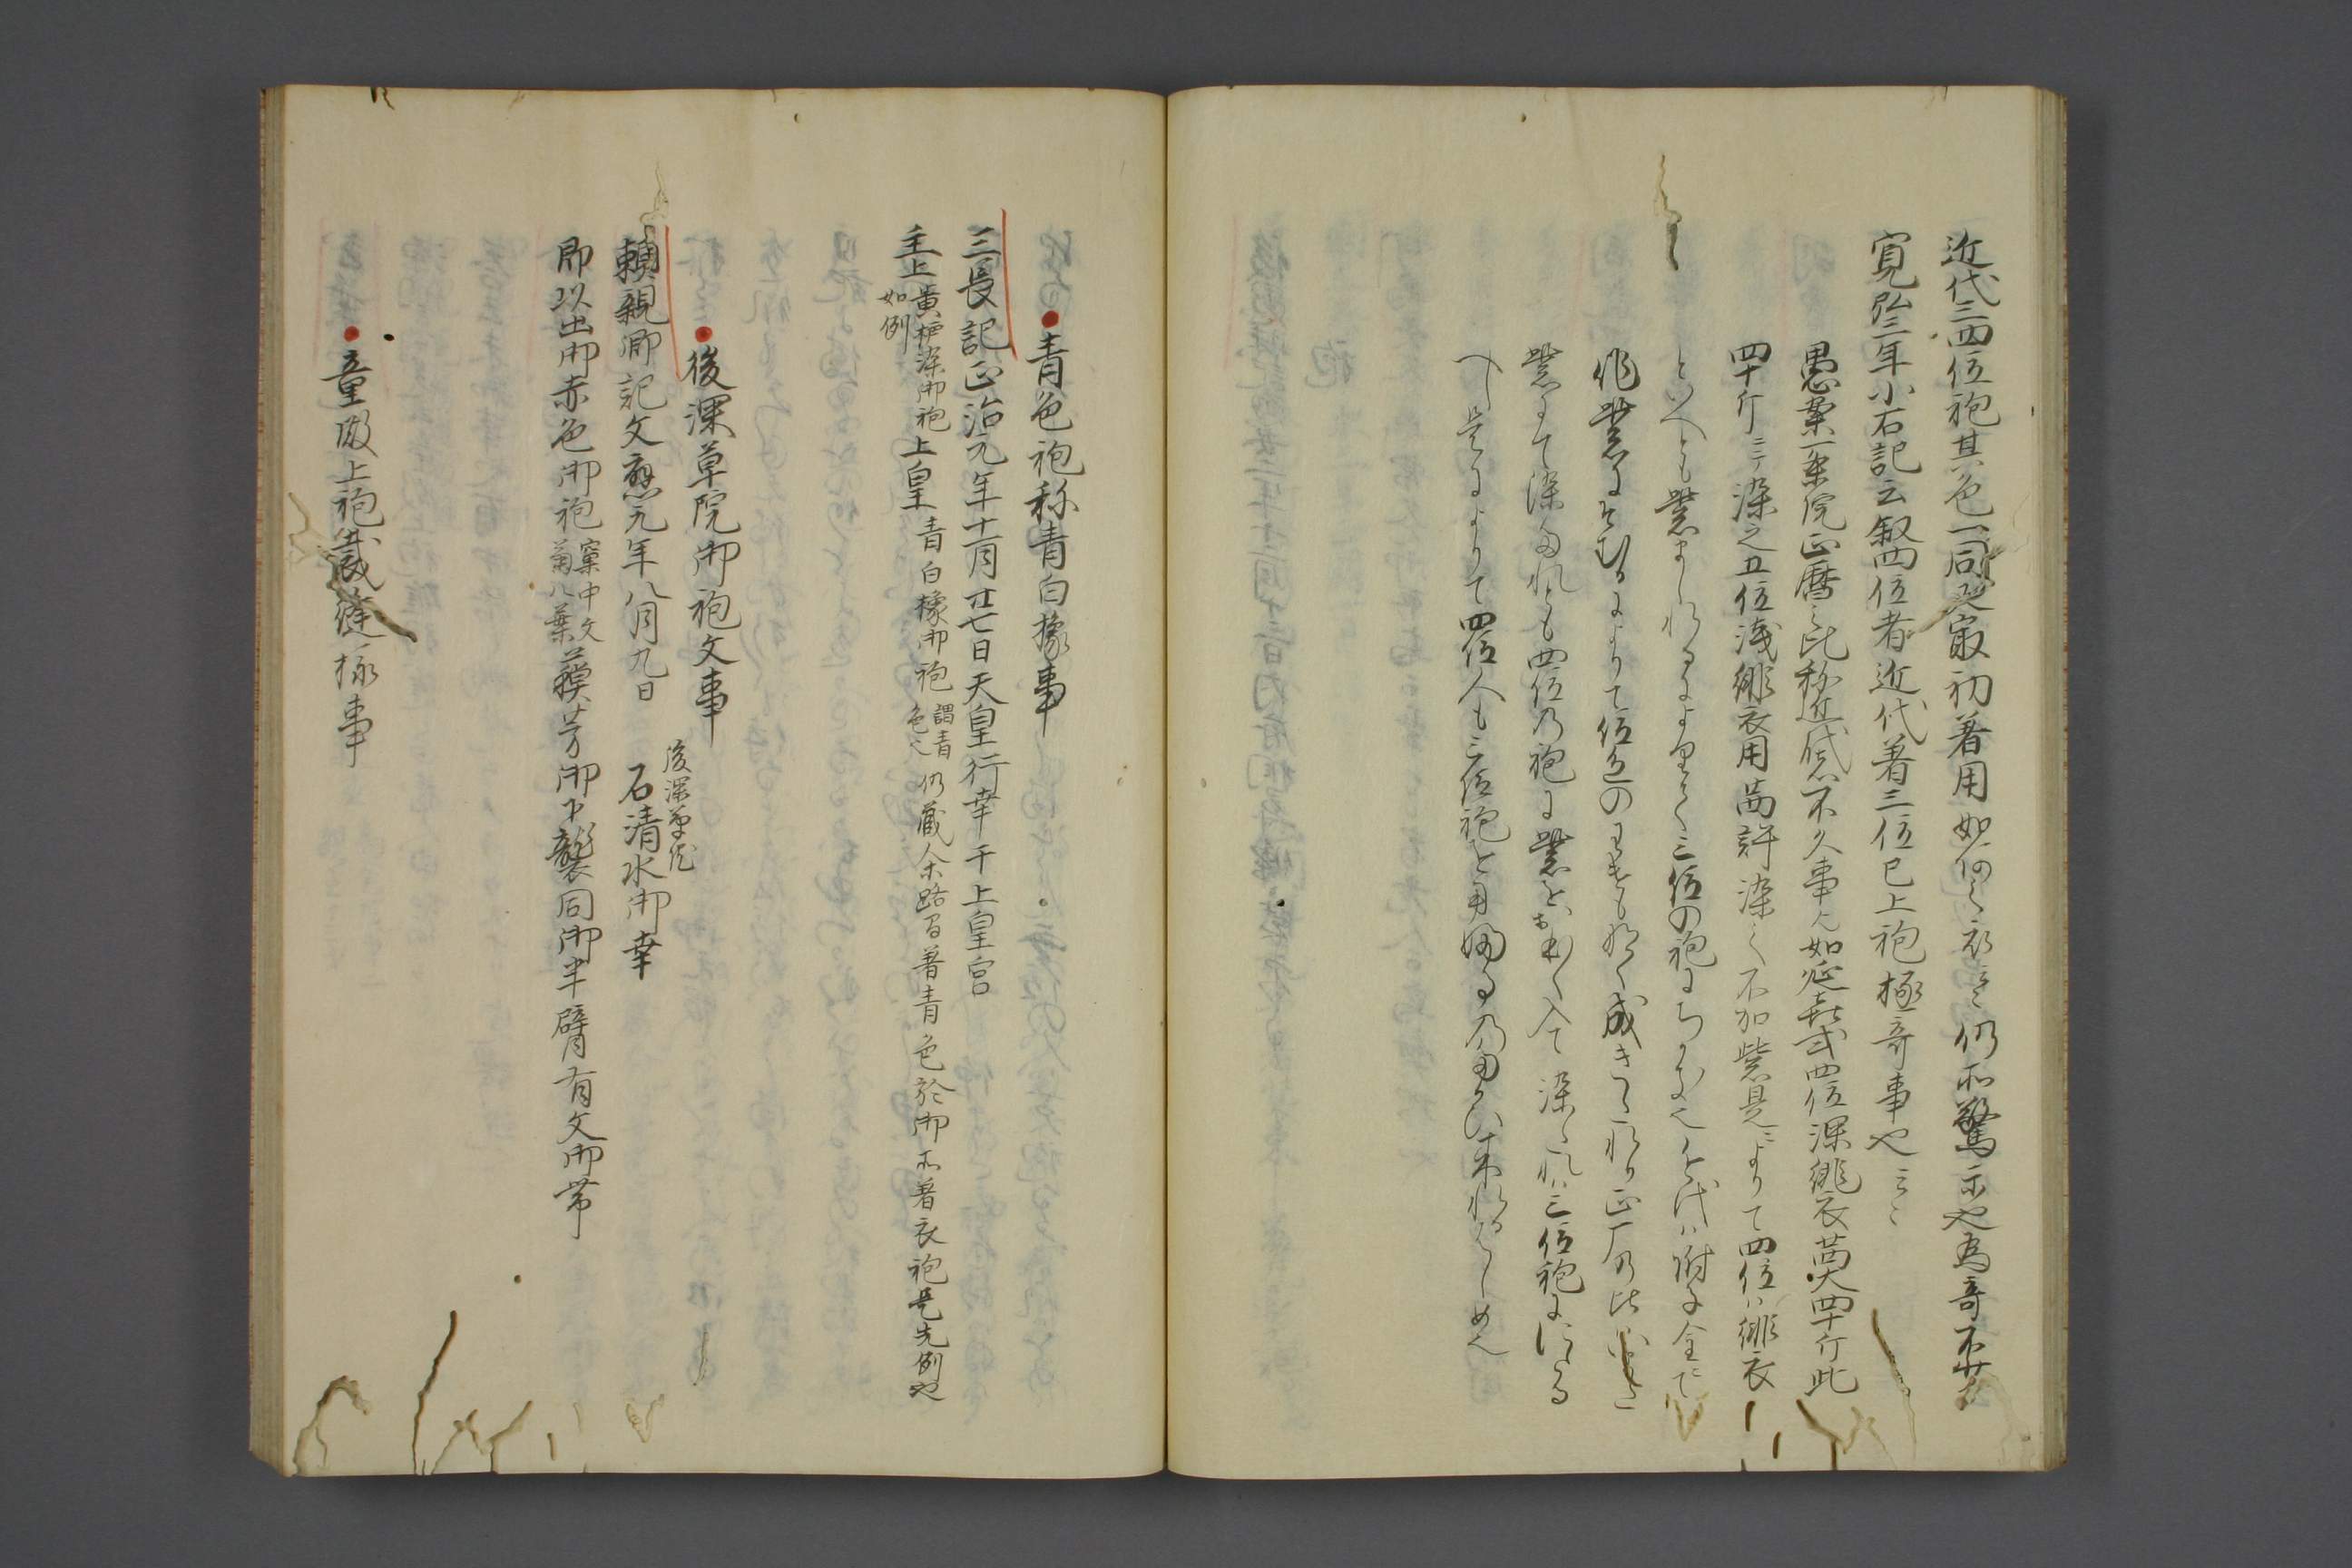 近代三四位袍其色一同是最初著用如何之衣乎仍所驚示也為奇不少
寛弘三年小右記云叙四位者近代著三位已上袍極奇事也云々
愚案一条院正暦之比称近代不久事歟如延喜式四位深緋衣茜大四十斤此
四十斤ニテ染之五位浅緋衣用茜許染之不加紫是によりて四位ハ緋衣
といへとも紫ましれるによりて三位の袍にちかし近代ハ附子金にて
紫をそむるによりて位色のわきもなく成きたれり正暦の比
紫にて染めれとも四位乃袍に紫をおほく入て染たれハ三位袍ににたる
へし是によりて四位人も三位袍を用
●青色袍称青白橡事
三長記正治元年十一月廿七日天皇行幸于上皇宮
主上黄櫨染御袍如例上皇青白橡御袍謂青色也仍蔵人路次著青色於御所著衣袍是先例也
●後深草院御袍文事
頼親卿記文応元年八月九日後深草院石清水御幸
即以出御赤色御袍窠中文菊八葉蘇芳御下襲同御半臂有文御帯
●童殿上袍蔵縫様事